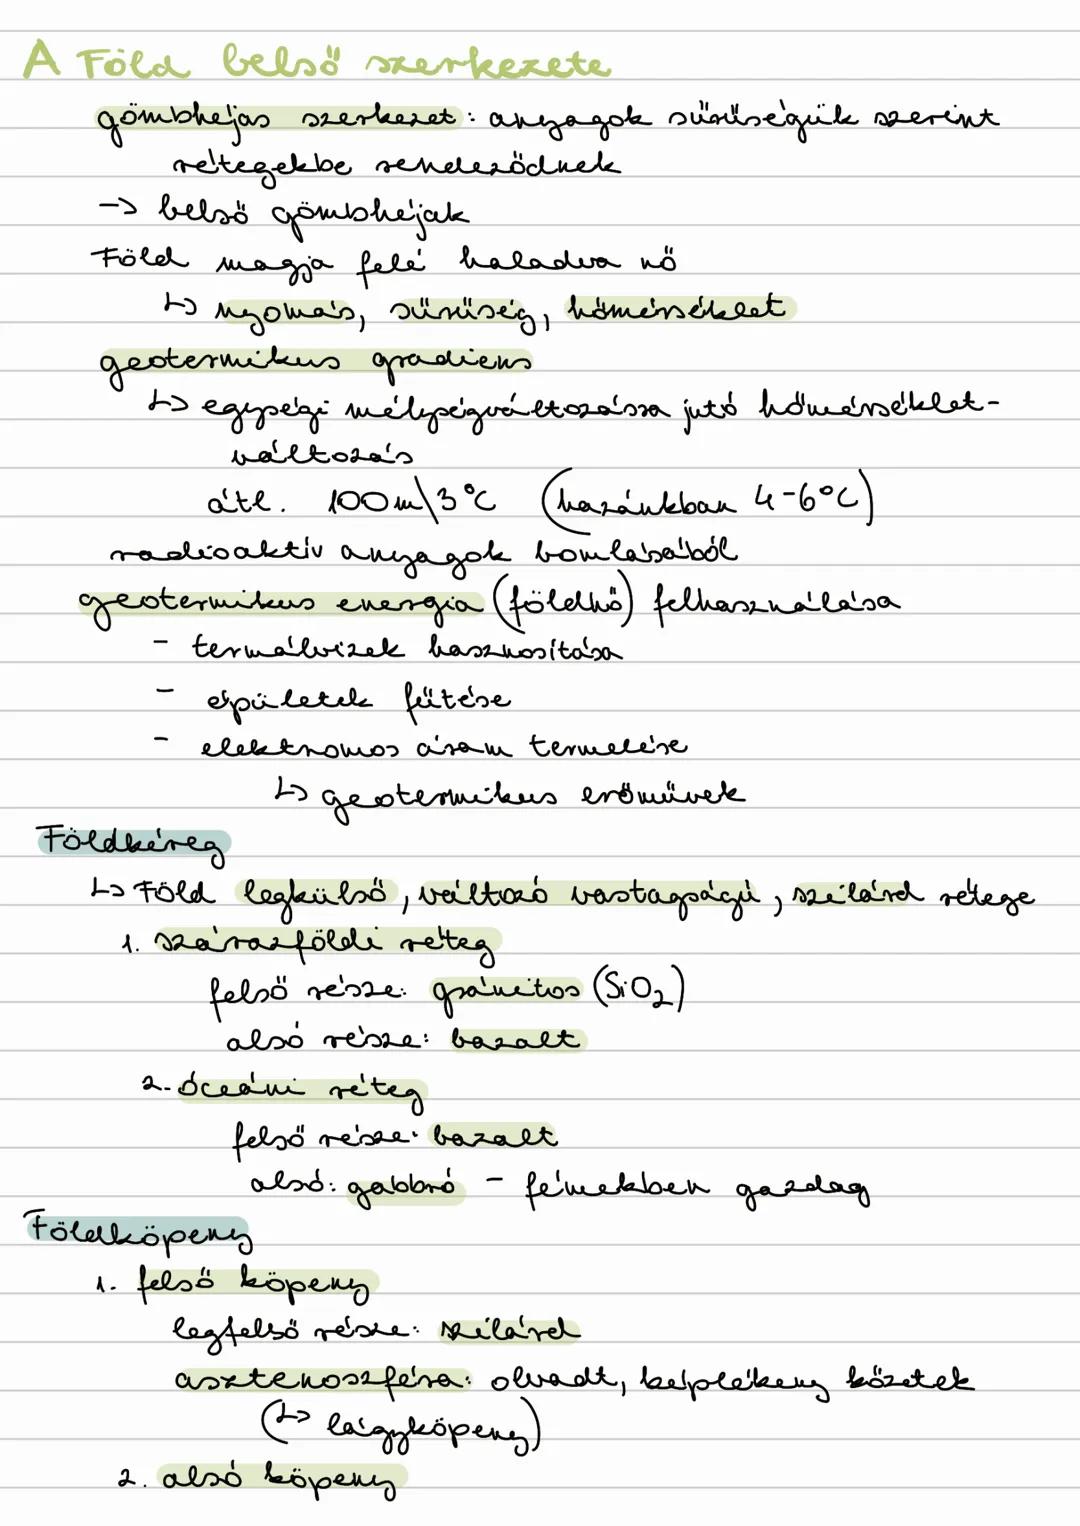 A Föld belső szerkezete
gömbhéjas szerkezet: anyagok sűrűségük szerint
rétegekbe rendeződnek
-> belső gömbhéjak
Föld magja felé haladva nő
↳ nyomás, sűrűség, hőmérséklet
geotermikus gradiens
↳ egységi mélységváltozásra jutó hőmérséklet-
változás
átl. 100m\3°C (hazánkban 4-6°C)
radioaktív anyagok bomlásából
geotermikus energia (földhő) felhasználása
- termálvizek hasznosítása
- épületek fűtése
- elektromos áram termelése
↳ geotermikus erőművek
Földkéreg
↳ Föld legkülső, változó vastagságú, szilárd rétege
1. szárazföldi réteg
felső része: gránitos (SiO₂)
alsó része: bazalt
2. óceáni réteg
felső része: bazalt
alsó: gabbró - fémekben gazdag
Földköpeny
1. felső köpeny
legfelső része: szilárd
asztenoszféra: olvadt, képlékeny kőzetek
(↳ lágyköpeny)
2. alsó köpeny